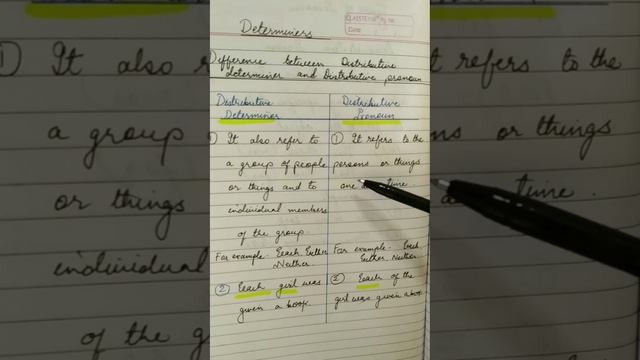 Determiners
Date
Difference between Distributive
determiner and Distributive pronoun
Distributive
Determiner
① It also refer to
a group of people
or things and to
individual members
of the group.
For example. Each Either
Neither
② Each girl was
given a book.
Distributive
Pronoun
① It refers to the
persons or things
one time
For example. Each
Either, Neither
② Each of the
girl was given a book.